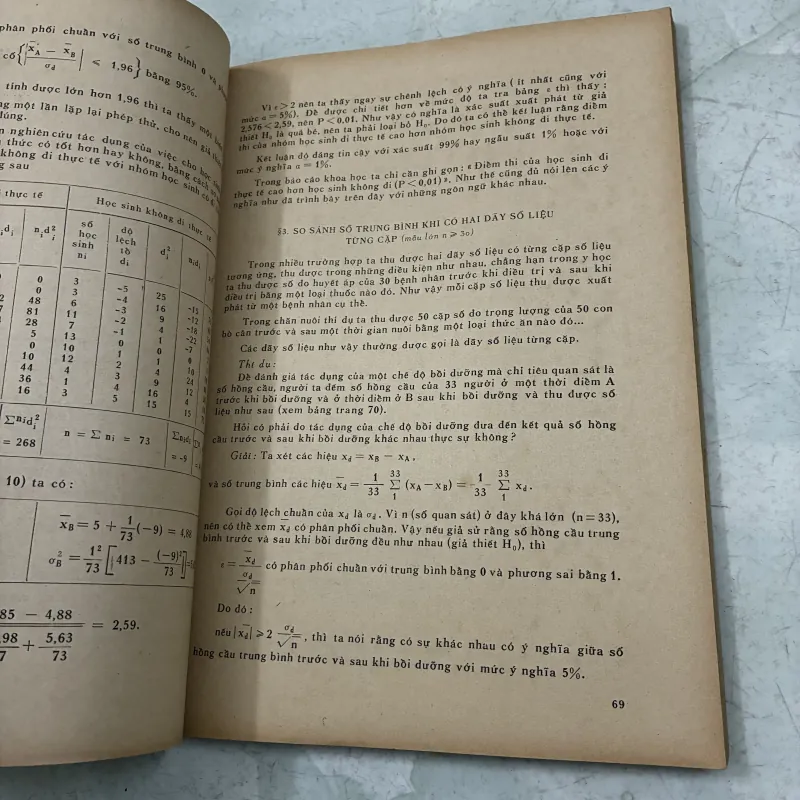 phân phối chuẩn với số trung bình 0 và
cố { | x̄A − x̄B / σd | ⩽ 1,96 } bằng 95%.
tính được lớn hơn 1,96 thì ta thấy một
ng một lần lặp lại phép thử, cho nên giả
lúng.
n nghiên cứu tác dụng của việc cho học sinh
thức có tốt hơn hay không, bằng cách so
không đi thực tế với nhóm học sinh có
g sau
i thực tế | Học sinh không đi thực tế
idi | nid²i | số học sinh ni | độ lệch tò di | d²i | nidi
0 3 −5 25 −15
0 3 −4 16 −12
48 6 −3 9 −18
81 11 −2 4 −22
28 7 −1 1 −7
5 13 0 0 0
0 10 1
10 12 2
44 4 3
36 1 4
16 3 5
Σnid²i = 268 | n = Σ ni = 73 | Σnidi = −9
10) ta có :
x̄B = 5 + 1/73 (−9) = 4,88
σ²B = 1²/73 [ 413 − (−9)²/73 ]
85 − 4,88
98/7 + 5,63/73 = 2,59.
Vì ε > 2 nên ta thấy ngay sự chênh lệch có ý nghĩa ( ít nhất cũng với
mức α = 5%). Để được chi tiết hơn về mức độ ta tra bảng ε thì thấy :
2,576 < 2,59, nên P < 0,01. Như vậy có nghĩa là xác suất xuất phát từ giả
thiết H₀ là quá bé, nên ta phải loại bỏ H₀. Do đó ta có thể kết luận rằng điểm
thi của nhóm học sinh đi thực tế cao hơn nhóm học sinh không đi thực tế.
Kết luận đó đáng tin cậy với xác suất 99% hay ngẫu suất 1% hoặc với
mức ý nghĩa α = 1%.
Trong báo cáo khoa học ta chỉ cần ghi gọn : « Điểm thi của học sinh đi
thực tế cao hơn học sinh không đi ( P < 0,01) ». Như thế cũng đủ nói lên các ý
nghĩa như đã trình bày trên đây với những ngôn ngữ khác nhau.
§3. SO SÁNH SỐ TRUNG BÌNH KHI CÓ HAI DÃY SỐ LIỆU
TỪNG CẶP (mẫu lớn n ⩾ 30)
Trong nhiều trường hợp ta thu được hai dãy số liệu có từng cặp số liệu
tương ứng, thu được trong những điều kiện như nhau, chẳng hạn trong y học
ta thu được số đo huyết áp của 30 bệnh nhân trước khi điều trị và sau khi
điều trị bằng một loại thuốc nào đó. Như vậy mỗi cặp số liệu thu được xuất
phát từ một bệnh nhân cụ thể.
Trong chăn nuôi thí dụ ta thu được 50 cặp số đo trọng lượng của 50 con
bò cân trước và sau một thời gian nuôi bằng một loại thức ăn nào đó...
Các dãy số liệu như vậy thường được gọi là dãy số liệu từng cặp.
Thí dụ :
Để đánh giá tác dụng của một chế độ bồi dưỡng mà chỉ tiêu quan sát là
số hồng cầu, người ta đếm số hồng cầu của 33 người ở một thời điểm A
trước khi bồi dưỡng và ở thời điểm B sau khi bồi dưỡng và thu được số
liệu như sau (xem bảng trang 70).
Hỏi có phải do tác dụng của chế độ bồi dưỡng đưa đến kết quả số hồng
cầu trước và sau khi bồi dưỡng khác nhau thực sự không ?
Giải : Ta xét các hiệu xd = xB − xA,
và số trung bình các hiệu x̄d = 1/33 Σ₁³³ (xA − xB) = 1/33 Σ₁³³ xd.
Gọi độ lệch chuẩn của xd là σd. Vì n (số quan sát) ở đây khá lớn (n = 33),
nên có thể xem x̄d có phân phối chuẩn. Vậy nếu giả sử rằng số hồng cầu trung
bình trước và sau khi bồi dưỡng đều như nhau (giả thiết H₀), thì
ε = x̄d / (σd/√n) có phân phối chuẩn với trung bình bằng 0 và phương sai bằng 1.
Do đó :
nếu |x̄d| ⩾ 2 σd/√n, thì ta nói rằng có sự khác nhau có ý nghĩa giữa số
hồng cầu trung bình trước và sau khi bồi dưỡng với mức ý nghĩa 5%.
69